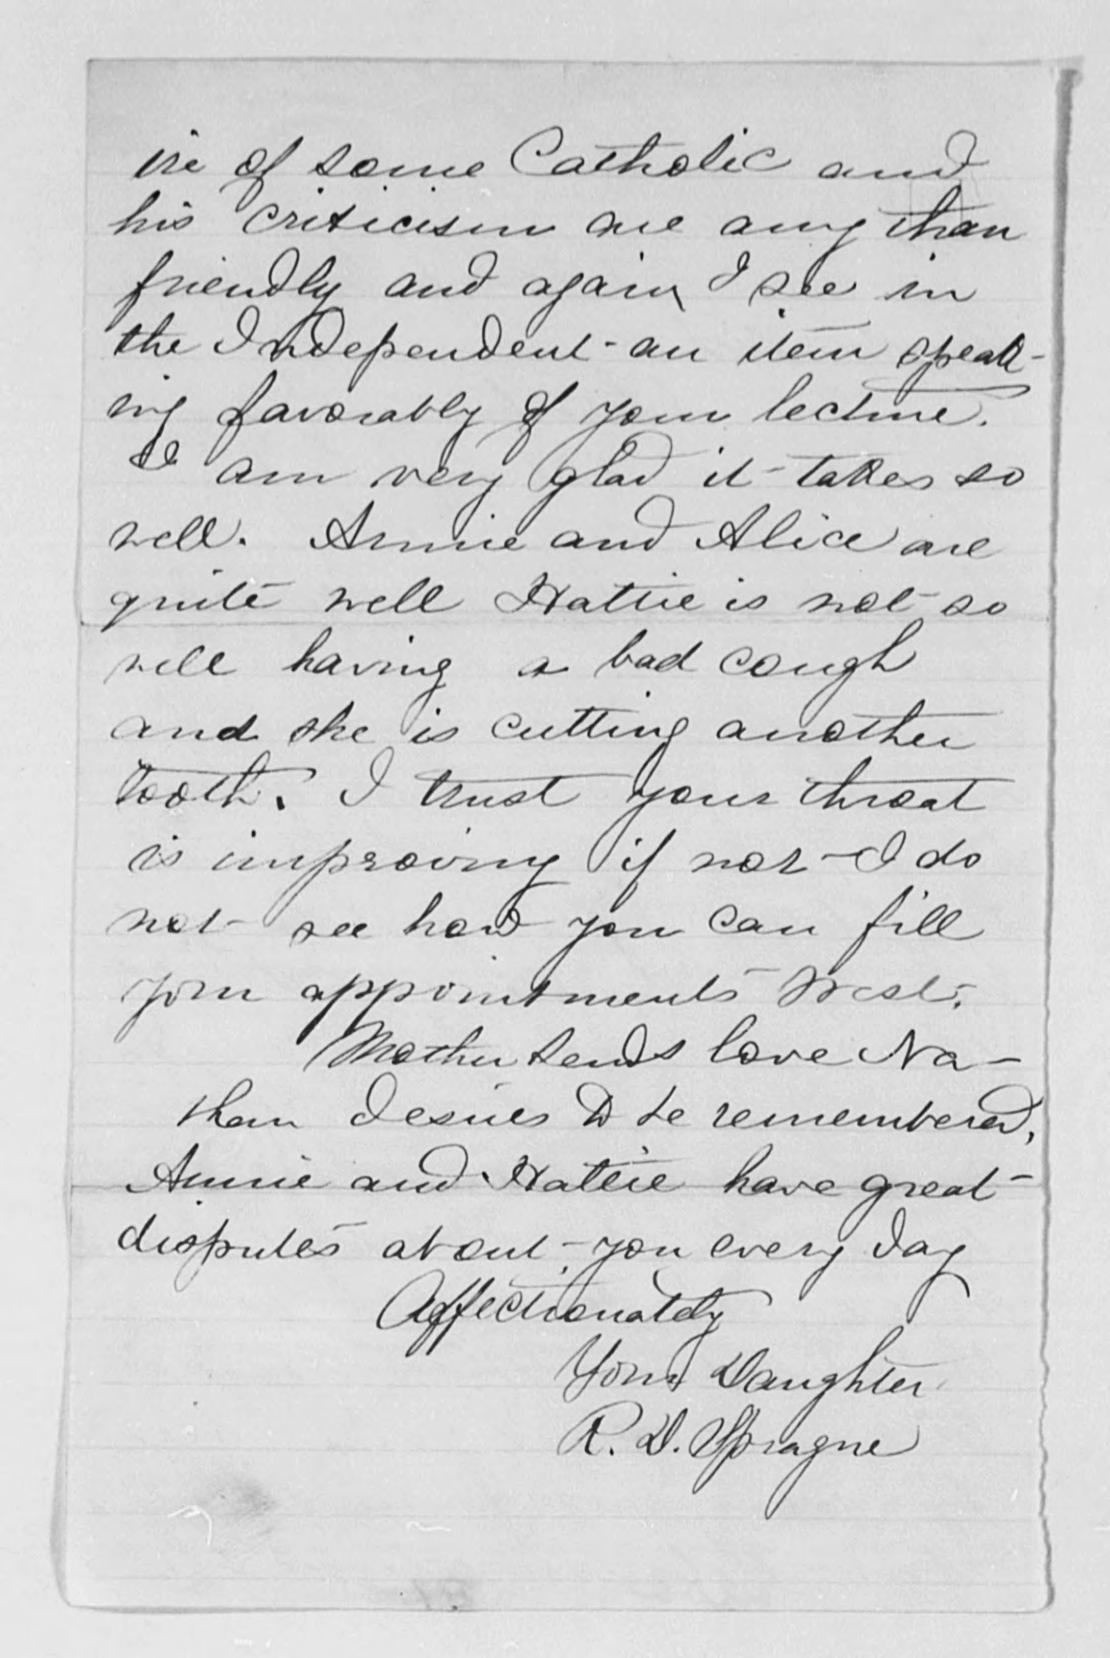 ire of some Catholic and
his criticism are any than
friendly and again I see in
the Independent an item speak-
ing favorably of your lecture.
I am very glad it takes so
well. Annie and Alice are
quite well Hattie is not so
well having a bad cough
and she is cutting another
tooth. I trust your throat
is improving if not I do
not see how you can fill
your appointments West.
Mother sends love Na-
than desires to be remembered,
Annie and Hattie have great
disputes about you every day
Affectionately
Your Daughter
R. D. Sprague